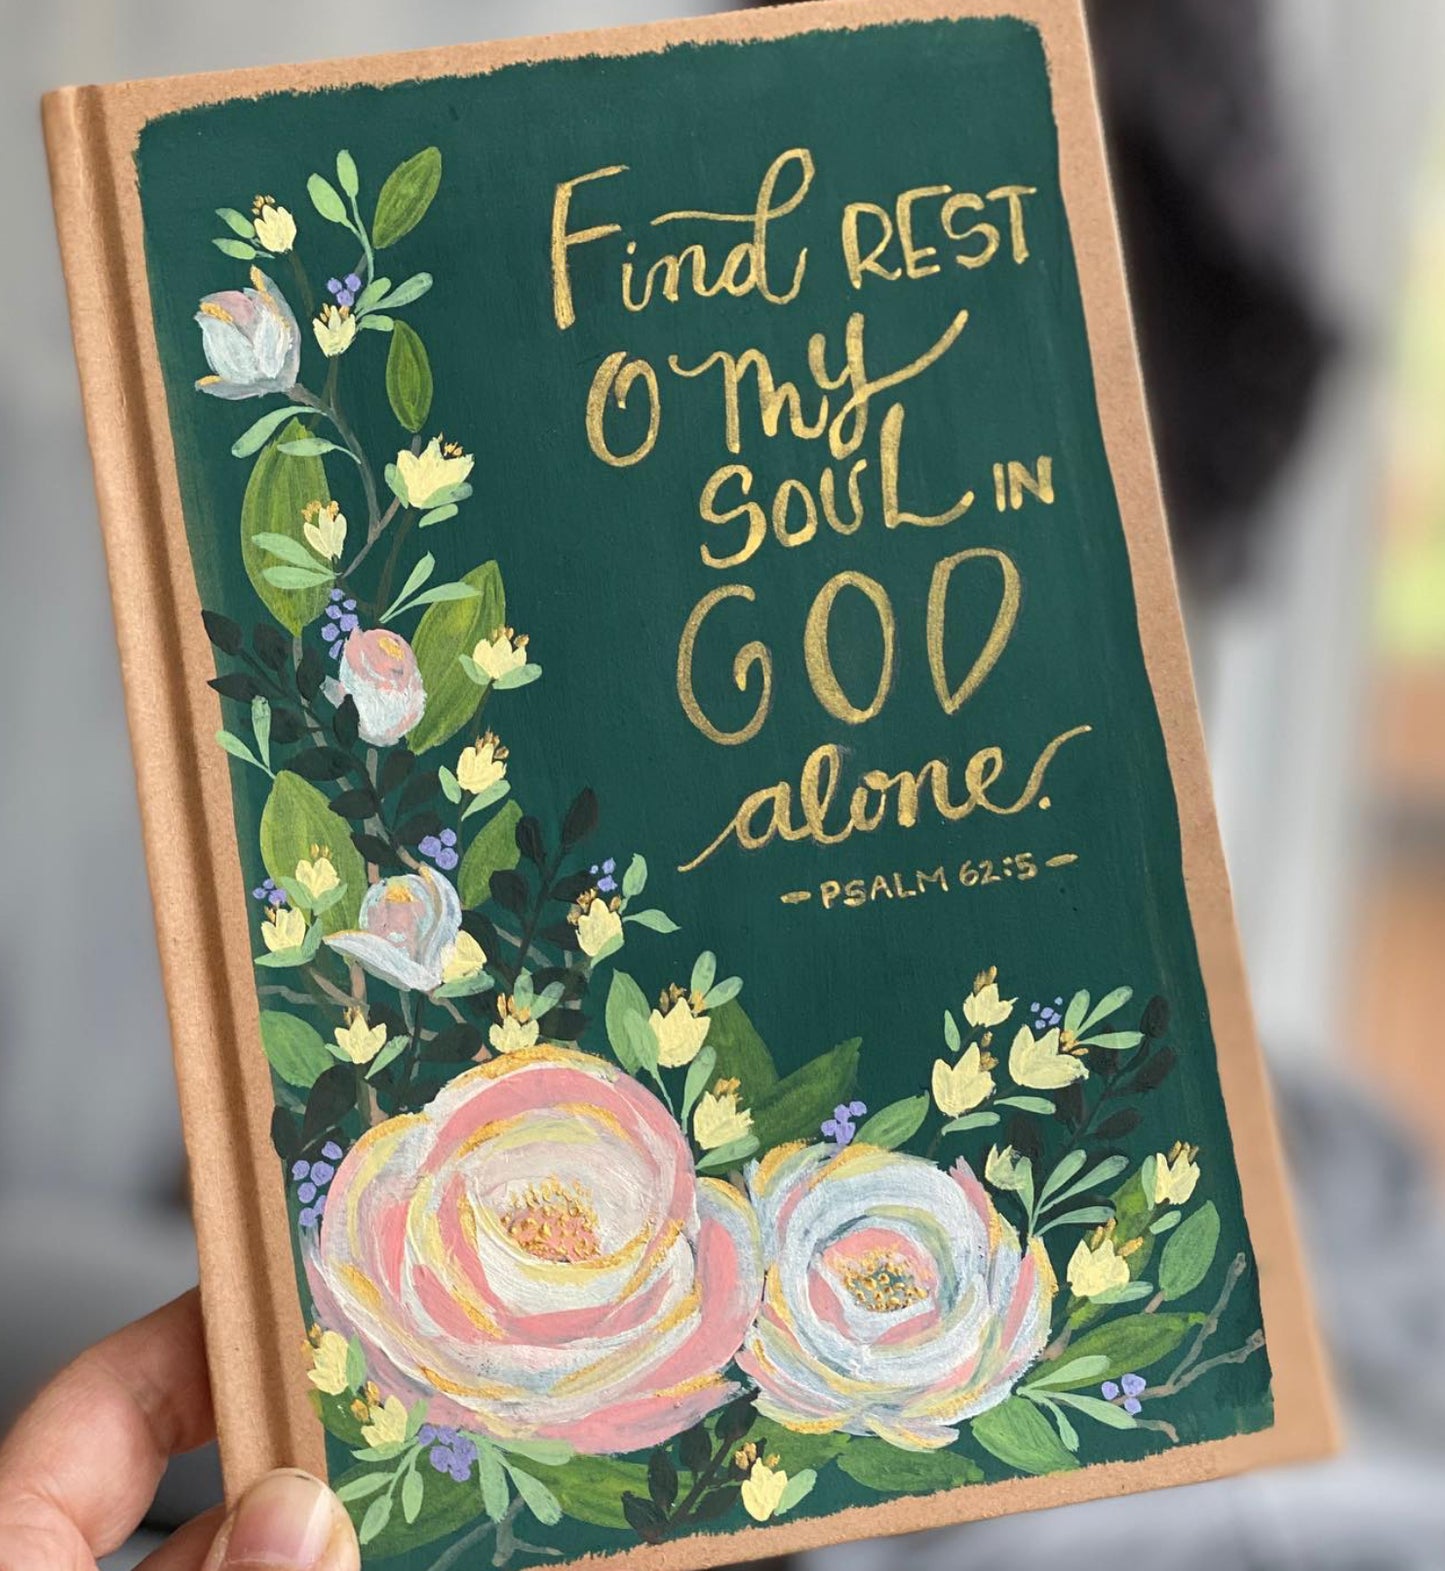 Find REST
O My
SOUL IN
GOD
alone.
- PSALM 62:5 -